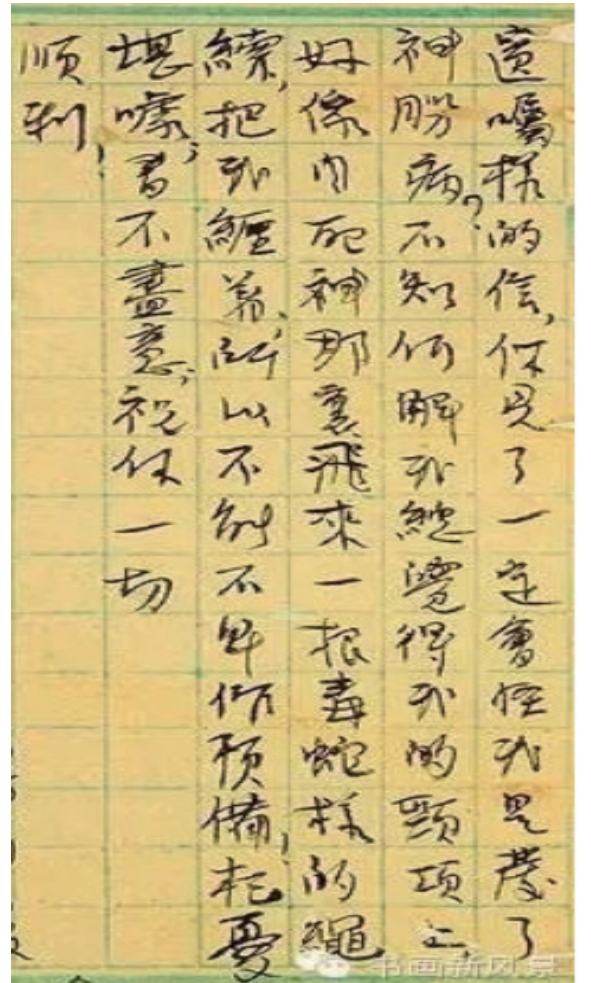 遺囑樣的信,你見了一定會怪我是發了
神經病?不知何解我總覺得我的頸項上,
好像自死神那裏飛來一根毒蛇樣的繩
索,把我纏着,所以不能不早作預備,杞憂
堪嚎;書不盡意;祝你一切
順利!
书画新风景